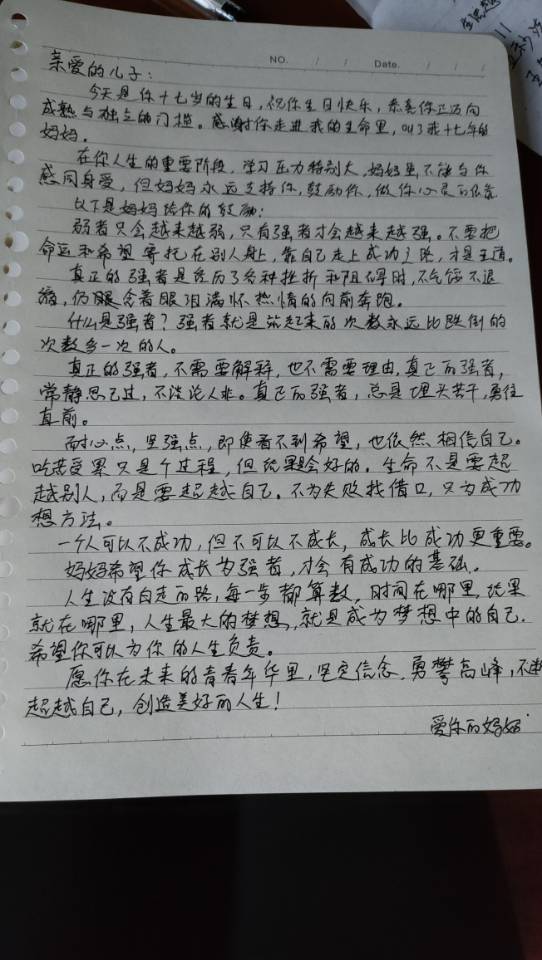 NO. / / Date. / /
亲爱的儿子：
今天是你十七岁的生日，祝你生日快乐，恭喜你正迈向
成熟与独立的门槛。感谢你走进我的生命里，叫了我十七年的
妈妈。
在你人生的重要阶段，学习压力特别大，妈妈虽不能与你
感同身爱，但妈妈永远支持你，鼓励你，做你心灵的依靠
以下是妈妈给你的鼓励：
弱者只会越来越弱，只有强者才会越来越强。不要把
命运和希望寄托在别人身上，靠自己走上成功之路，才是王道。
真正的强者是经历了各种挫折和阻碍时，不气馁不退
缩，仍眼含着眼泪满怀热情的向前奔跑。
什么是强者？强者就是站起来的次数永远比跌倒的
次数多一次的人。
真正的强者，不需要解释，也不需要理由，真正的强者，
常静思己过，不谈论人非。真正的强者，总是埋头苦干，勇往
直前。
耐心点，坚强点，即使看不到希望，也依然相信自己。
吃苦受累只是个过程，但结果会好的。生命不是要超
越别人，而是要超越自己。不为失败找借口，只为成功
想方法。
一个人可以不成功，但不可以不成长，成长比成功更重要。
妈妈希望你成长为强者，才会有成功的基础。
人生没有白走的路，每一步都算数，时间在哪里，结果
就在哪里，人生最大的梦想，就是成为梦想中的自己.
希望你可以为你的人生负责。
愿你在未来的青春年华里，坚定信念，勇攀高峰，不断
超越自己，创造美好的人生！
爱你的妈妈